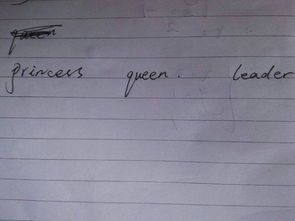 queen
princess queen. leader